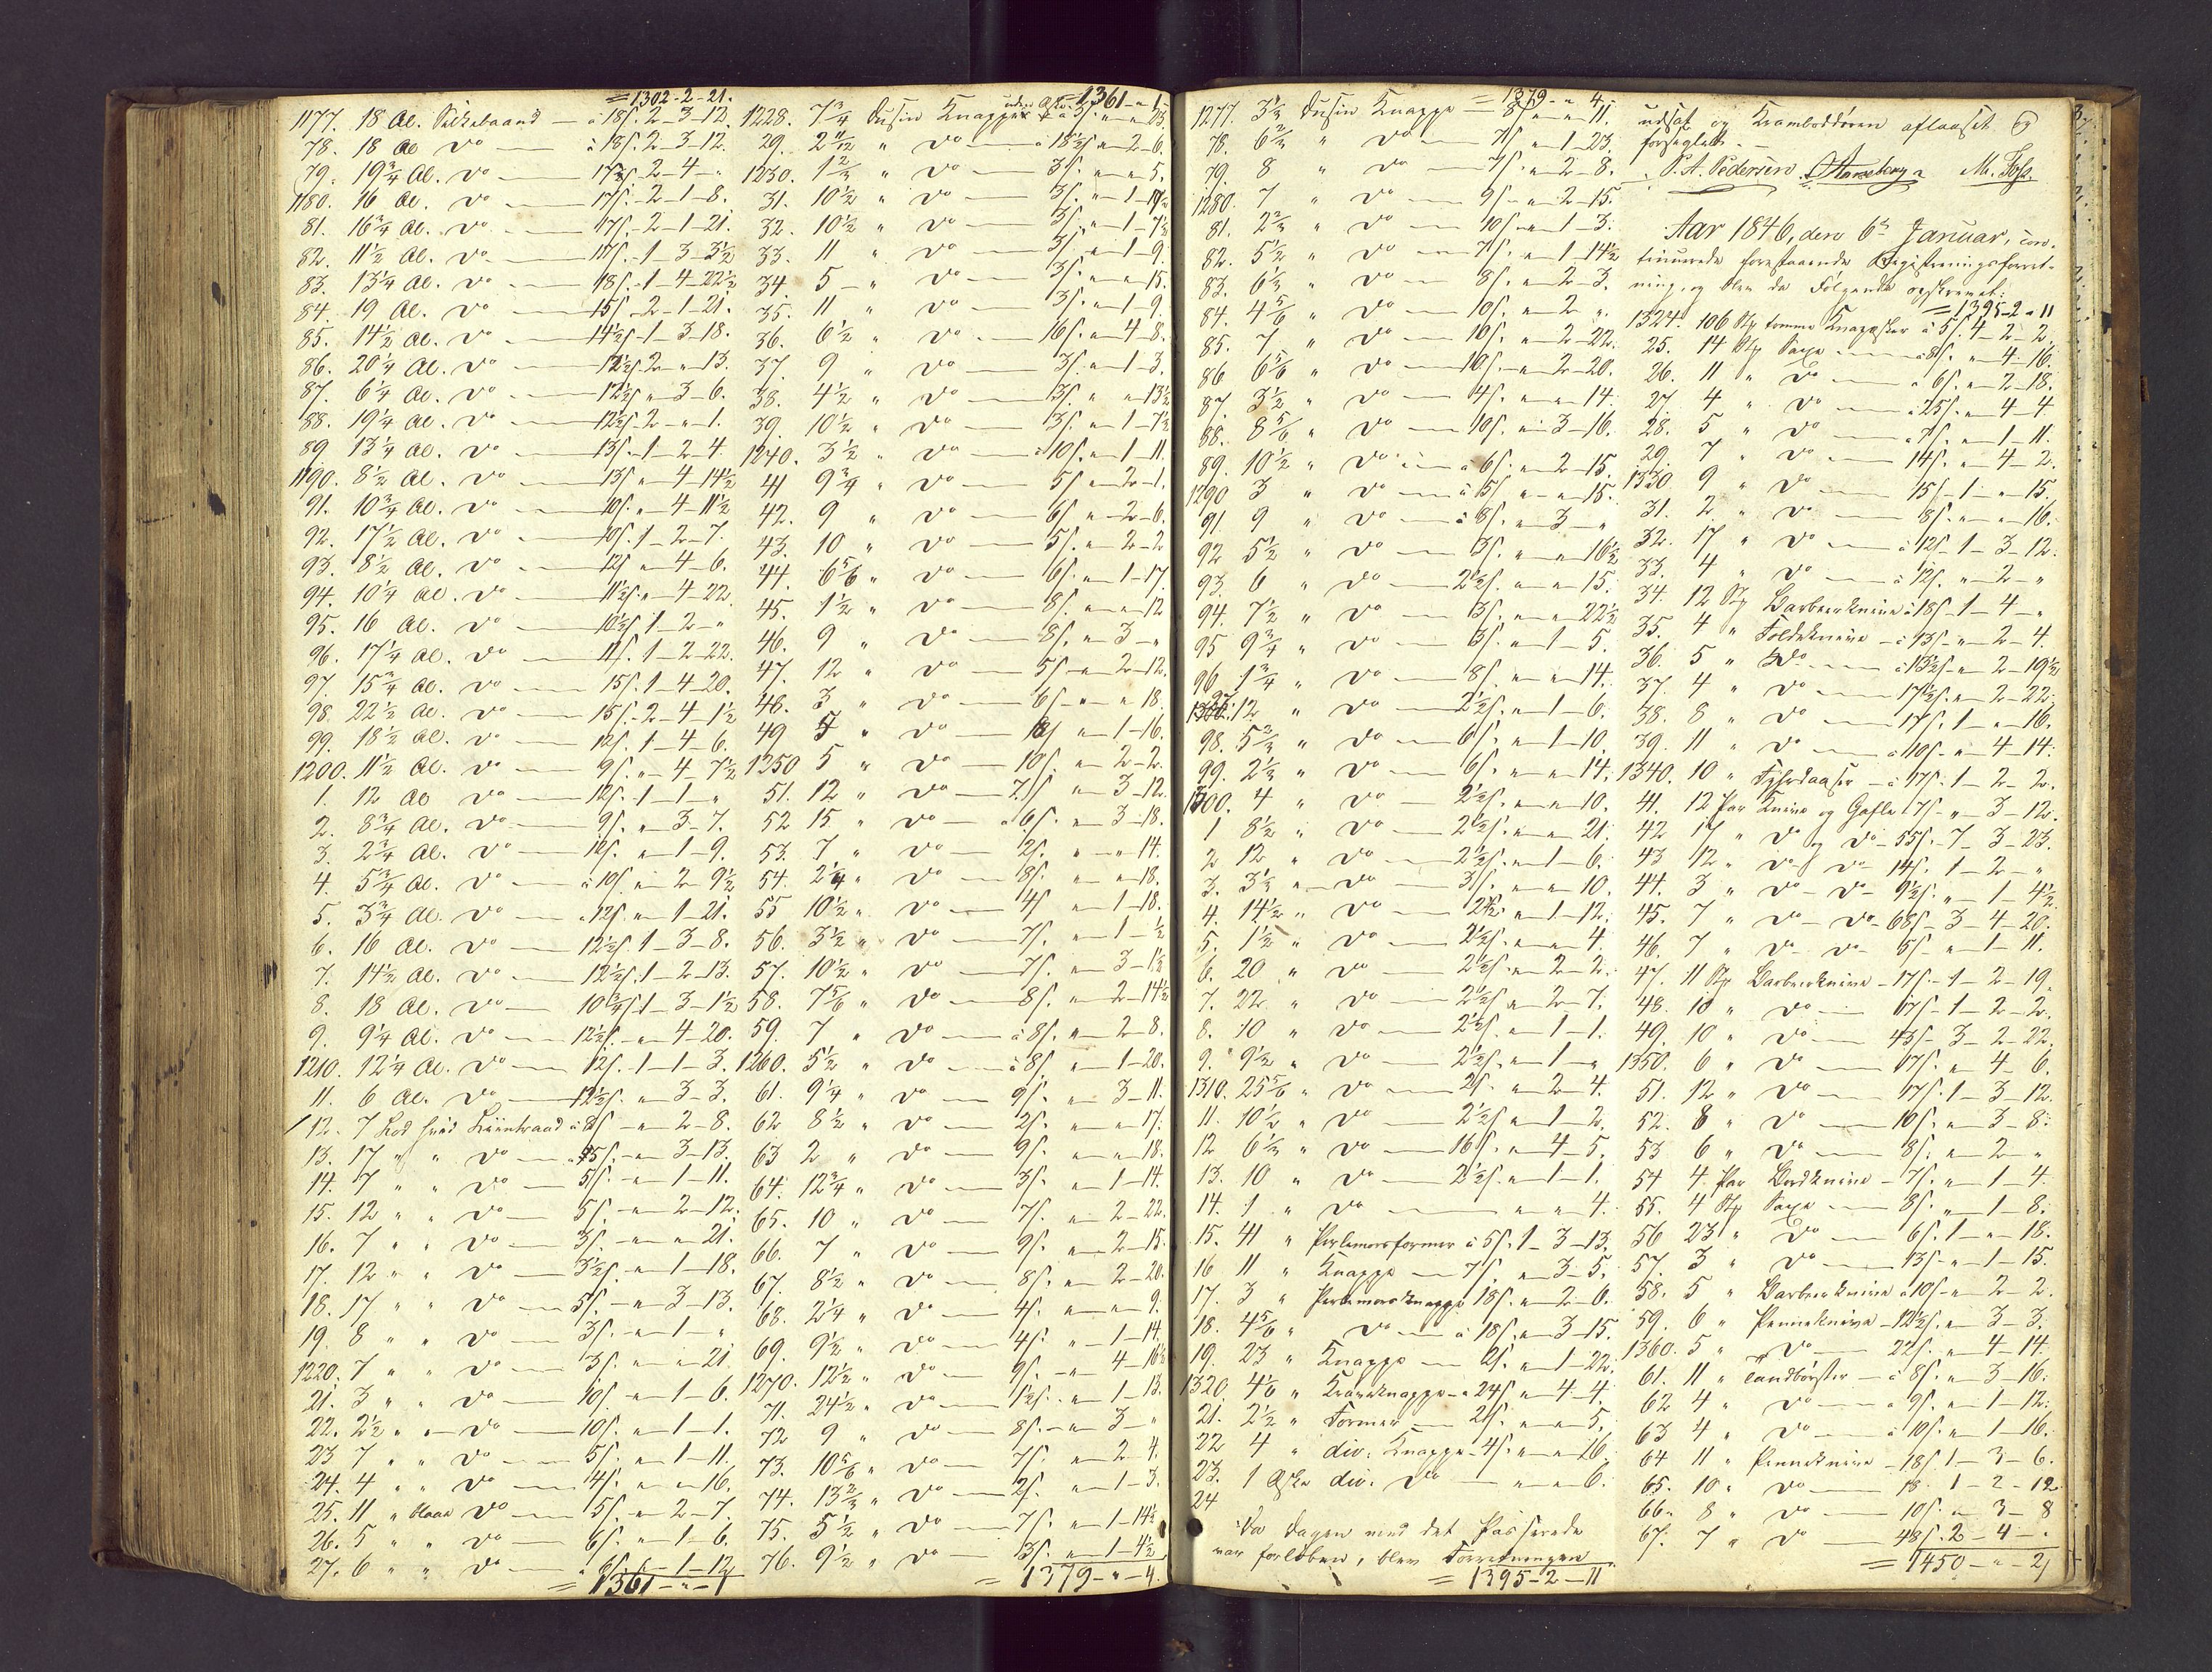 = 1302-2-21.
1177. 18 Al. Silkebaand — à 18s. 2-3-12.
78. 18 Al do — à 18s. 2-3-12.
79. 19¾ Al. do — 2-4-"
1180. 16 Al. do — 17s. 2-1-8.
81. 16¾ Al. do — 17s. 2-1-21.
82. 11½ Al. do — 17s. 1-3-3½
83. 13¼ Al. do — 18s. 1-4-22½
84. 19 Al. do — 15s. 2-1-21.
85. 14½ Al. do — 14½s. 1-3-18.
86. 20¼ Al. do — 12½s. 2-"-13.
87. 6¼ Al. do — 12½s. "-3-6.
88. 19¼ Al. do — 12½s. 2-"-1.
89. 13¼ Al. do — 13s. 1-2-4.
1190. 8½ Al. do — 13s. "-4-14½
91. 10¾ Al. do — 10s. "-4-11½
92. 17½ Al. do — 10s. 1-2-7.
93. 8½ Al. do — 12s. "-4-6.
94. 10¼ Al. do — 11½s. "-4-22.
95. 16 Al. do — 10½s. 1-2-"
96. 17¼ Al. do — 11s. 1-2-22.
97. 15¾ Al. do — 15s. 1-4-20.
98. 22½ Al. do — 15s. 2-4-1½
99. 18½ Al. do — 12s. 1-4-6.
1200. 11½ Al. do — 9s. "-4-7½
1. 12 Al do — 12s. 1-1-"
2. 8¾ Al. do — 9s. "-3-7.
3. 2¾ Al. do — 12s. "-1-9.
4. 5¾ Al. do — à 10s. "-2-9½
5. 3¾ Al. do — 12s. "-1-21.
6. 16 Al. do — 12½s. 1-3-8.
7. 14½ Al. do — 12½s. 1-2-13.
8. 18 Al. do — 10¾s. 1-3-1½
9. 9¼ Al. do — 12½s. "-4-20.
1210. 12¼ Al. do — 12s. 1-1-3.
11. 6 Al. do — 12½s. "-3-3.
12. 7 Lod hvid Liintraad à 8s. "-2-8.
13. 17 " " do — 5s. "-3-13.
14. 7 " " do — 5s. "-1-11.
15. 12 " " do — 5s. "-2-12.
16. 7 " " do — 3s. "-"-21.
17. 12 " " do — 3½s. "-1-18.
18. 17 " " do — 5s. "-3-13.
19. 8 " " do — 3s. "-1-"
1220. 7 " " do — 3s. "-"-21.
21. 3 " " do — 10s. "-1-6.
22. 2½ " " do — 10s. "-1-1.
23 7 " " do — 5s. "-1-11.
24. 4 " " do — 4s. "-"-16.
25. 11 " blaae do — 5s. "-2-7.
26. 5 " " do — 6s. "-1-6.
27. 6 " " do — 6s. "-1-12
= 1361-"-1
= 1361-"-1
1228. 7¾ Dusin Knapper à 3s. "-"-23.
29. 2 11/12 " do — à 18½s. "-2-6.
1230. 1⅔ " do — 3s. "-"-5.
31. 10½ " do — 3s. "-1-7½
32. 10½ " do — 3s. "-1-7½
33. 11 " do — 3s. "-1-9.
34 5 " do — 3s. "-"-15.
35. 11 " do — 3s. "-1-9.
36. 6½ " do — 16s. "-4-8.
37. 9 " do — 3s. "-1-3.
38. 4½ " do — 3s. "-"-13½
39. 10½ " do — 3s. "-1-7½
1240. 3½ " do — à 10s. "-1-11.
41 9¾ " do — 5s. "-2-1.
42. 9 " do — 6s. "-2-6.
43. 10 " do — 5s. "-2-2
44. 6⅚ " do — 6s. "-1-17.
45. 1½ " do — 8s. "-"-12
46. 9 " do — 8s. "-3-"
47. 12 " do — 5s. "-2-12.
48. 3 " do — 6s. "-"-18.
49 5 " do — 8s. "-1-16.
1250 5 " do — 10s. "-2-2.
51. 12 " do — 7s. "-3-12.
52 15 " do — à 6s. "-3-18.
53. 7 " do — 2s. "-"-14.
54. 2¼ " do — 8s. "-"-18.
55 10½ " do — 4s. "-1-18.
56. 3½ " do — 7s. "-1-½
57. 10½ " do — 7s. "-3-1½
58. 7⅚ " do — 8s. "-2-14½
59. 7 " do — à 8s. "-2-8.
1260. 5½ " do — à 8s. "-1-20.
61. 9¼ " do — 9s. "-3-11.
62 8½ " do — 2s. "-"-17.
63 2 " do — 9s. "-"-18.
64. 12¾ " do — 3s. "-1-14.
65. 10 " do — 7s. "-2-22.
66. 7 " do — 9s. "-2-15.
67. 8½ " do — 8s. "-2-20.
68. 2¼ " do — 4s. "-"-9.
69. 9½ " do — 4s. "-1-14.
1270. 12½ " do — 9s. "-4-16½
71. 24½ " do — 1½s. "-1-13.
72 9 " do — 8s. "-3-"
73. 10⅚ " do — 7s. "-2-4.
74. 13⅔ " do — 2s. "-1-3.
75. 5½ " do — 7s. "-1-14½
76. 9½ " do — 3s. "-1-4½
= 1379-"-4.
= 1379-"-4.
1277. 3⅓ Dusin Knappe — 8s. "-"-11.
78. 6⅔ " do — 7s. "-1-23.
79. 8 " do — 7s. "-2-8.
1280. 7 " do — 9s. "-2-15.
81. 2⅔ " do — 10s. "-1-3.
82. 5½ " do — 7s. "-1-14½
83. 6⅓ " do — 8s. "-2-3.
84. 4⅚ " do — 10s. "-2-"
85. 7 " do — 10s. "-2-22.
86 6⅚ " do — 10s. "-2-20.
87. 3½ " do — 4s. "-"-14.
88. 8⅚ " do — 10s. "-3-16.
89. 10½ " do — à 6s. "-2-15.
1290 3 " do — à 5s. "-"-15.
91 9 " do — à 8s. "-3-"
92 5½ " do — 3s. "-"-16½
93. 6 " do — 2½s. "-"-15.
94. 7½ " do — 3s. "-"-22½
95 9¾ " do — 3s. "-1-5.
96 1¾ " do — 8s. "-"-14.
97 12 " do — 2½s. "-1-6.
98. 5⅔ " do — 6s. "-1-10.
99. 2⅓ " do — 6s. "-"-14.
1300. 4 " do — 2½s. "-"-10.
1 8½ " do — 2½s. "-"-21.
2 12 " do — 2½s. "-1-6.
3. 3⅓ " do — 3s. "-"-10.
4. 14½ " do — 2½ "-1-12.
5. 1½ " do — 2½s. "-"-4.
6. 20 " do — 2½s. "-2-2.
7. 22 " do — 2½s. "-2-7.
8. 10 " do — 2½s. "-1-1.
9. 9½ " do — 2½s. "-1-"
1310. 25⅚ " do — 2s. "-2-4.
11. 10½ " do — 2½s. "-1-2.
12 6⅓ " do — 16s. "-4-5.
13. 10 " do — 2½s. "-1-1.
14. 1 " do — "-"-4.
15. 41 " Perlemorsformer à 5s. 1-3-13.
16 11 " Knappe — 7s. "-3-5.
17. 3 " Perlemorsknappe 18s. "-2-6.
18. 4⅚ " do — à 18s. "-3-15.
19. 23 " Knappe — 2s. "-1-22.
1320. 4⅙ " Knapper — à 24s. "-4-4.
21. 2½ " Former — 2s. "-"-5.
22 4 " div. Knappe - 4s. "-"-16.
23. 1 Æske div. do — "-"-6.
24
Da Dagen med det Passerede
var forløben, blev Forretningen
= 1395-2-11
udsat og Kramboddøren aflaaset og
forseglet. —
P. A. Pedersen. M. Foss.
Aar 1846, den 6te Januar, con-
tinuerede forestaaende Registreringsforret-
ning, og blev da Følgende opskrevet:
= 1395-2-11
1324. 106 Stk tomme Knapæsker à 5s. 4-2-2.
25. 14 Stk Saxe — à 8s. "-4-16.
26. 11 " do — à 6s. "-2-18.
27 4 " do — à 25s. "-4-4.
28. 5 " do — à 7s. "-1-11.
29. 7 " do — 14s. "-4-2.
1330. 9 " do — 15s. 1-"-15.
31. 2 " do — 8s. "-"-16.
32. 17 " do — à 12s. 1-3-12.
33. 4 " do — à 12s. "-2-"
34. 12 Stk Barbeerknive à 18s. 1-4-"
35. 4 " Foldeknive — à 13s. "-2-4.
36. 5 " do — à 13½s. "-2-19½
37. 4 " do — 17½s. "-2-22.
38. 8 " do — 17s. 1-"-16.
39. 11 " do — à 10s. "-4-14.
1340. 10 " Fyrdaaser — à 17s. 1-2-2.
41. 12 Par Knive og Gafle 7s. "-3-12.
42 17 " do og do - 55s. 7-3-23.
43 12 " do do 14s. 1-2-"
44. 3 " do - do - 9½s. "-1-4½.
45. 7 " do - do - 68s. 3-4-20.
46. 7 " do - do - 5s. "-1-11.
47. 11 Stk Barbeerknive - 17s. 1-2-19.
48. 10 " do — 17s. 1-2-2.
49. 10 " do — 43s. 3-2-22.
1350. 6 " do — 17s. "-4-6.
51. 12 " do — 17s. 1-3-12.
52. 8 " do — 10s. "-3-8.
53 6 " do — 8s. "-2-"
54 4 Par Bordknive — 7s. "-1-4.
55. 4 Stk Saxe — 8s. "-1-8.
56 23 " do — 6s. 1-"-18.
57. 3 " do — 13s. "-1-15.
58. 5 " Barbeerknive à 10s. "-2-2.
59. 6 " Penneknive - 12½s. "-3-3.
1360. 5 " do — 22s. "-4-14.
61. 11 " Tandbørster — à 8s. "-3-16.
62 4 " do — à 9s. "-1-12.
63 4 " do — à 10s. "-1-16.
64 11 " Penneknive - 18s. 1-3-6.
65. 10 " do — 18. 1-2-12.
66. 8 " do — 10s. "-3-8
67. 7 " do — 48s. 2-4-"
= 1450-"-21